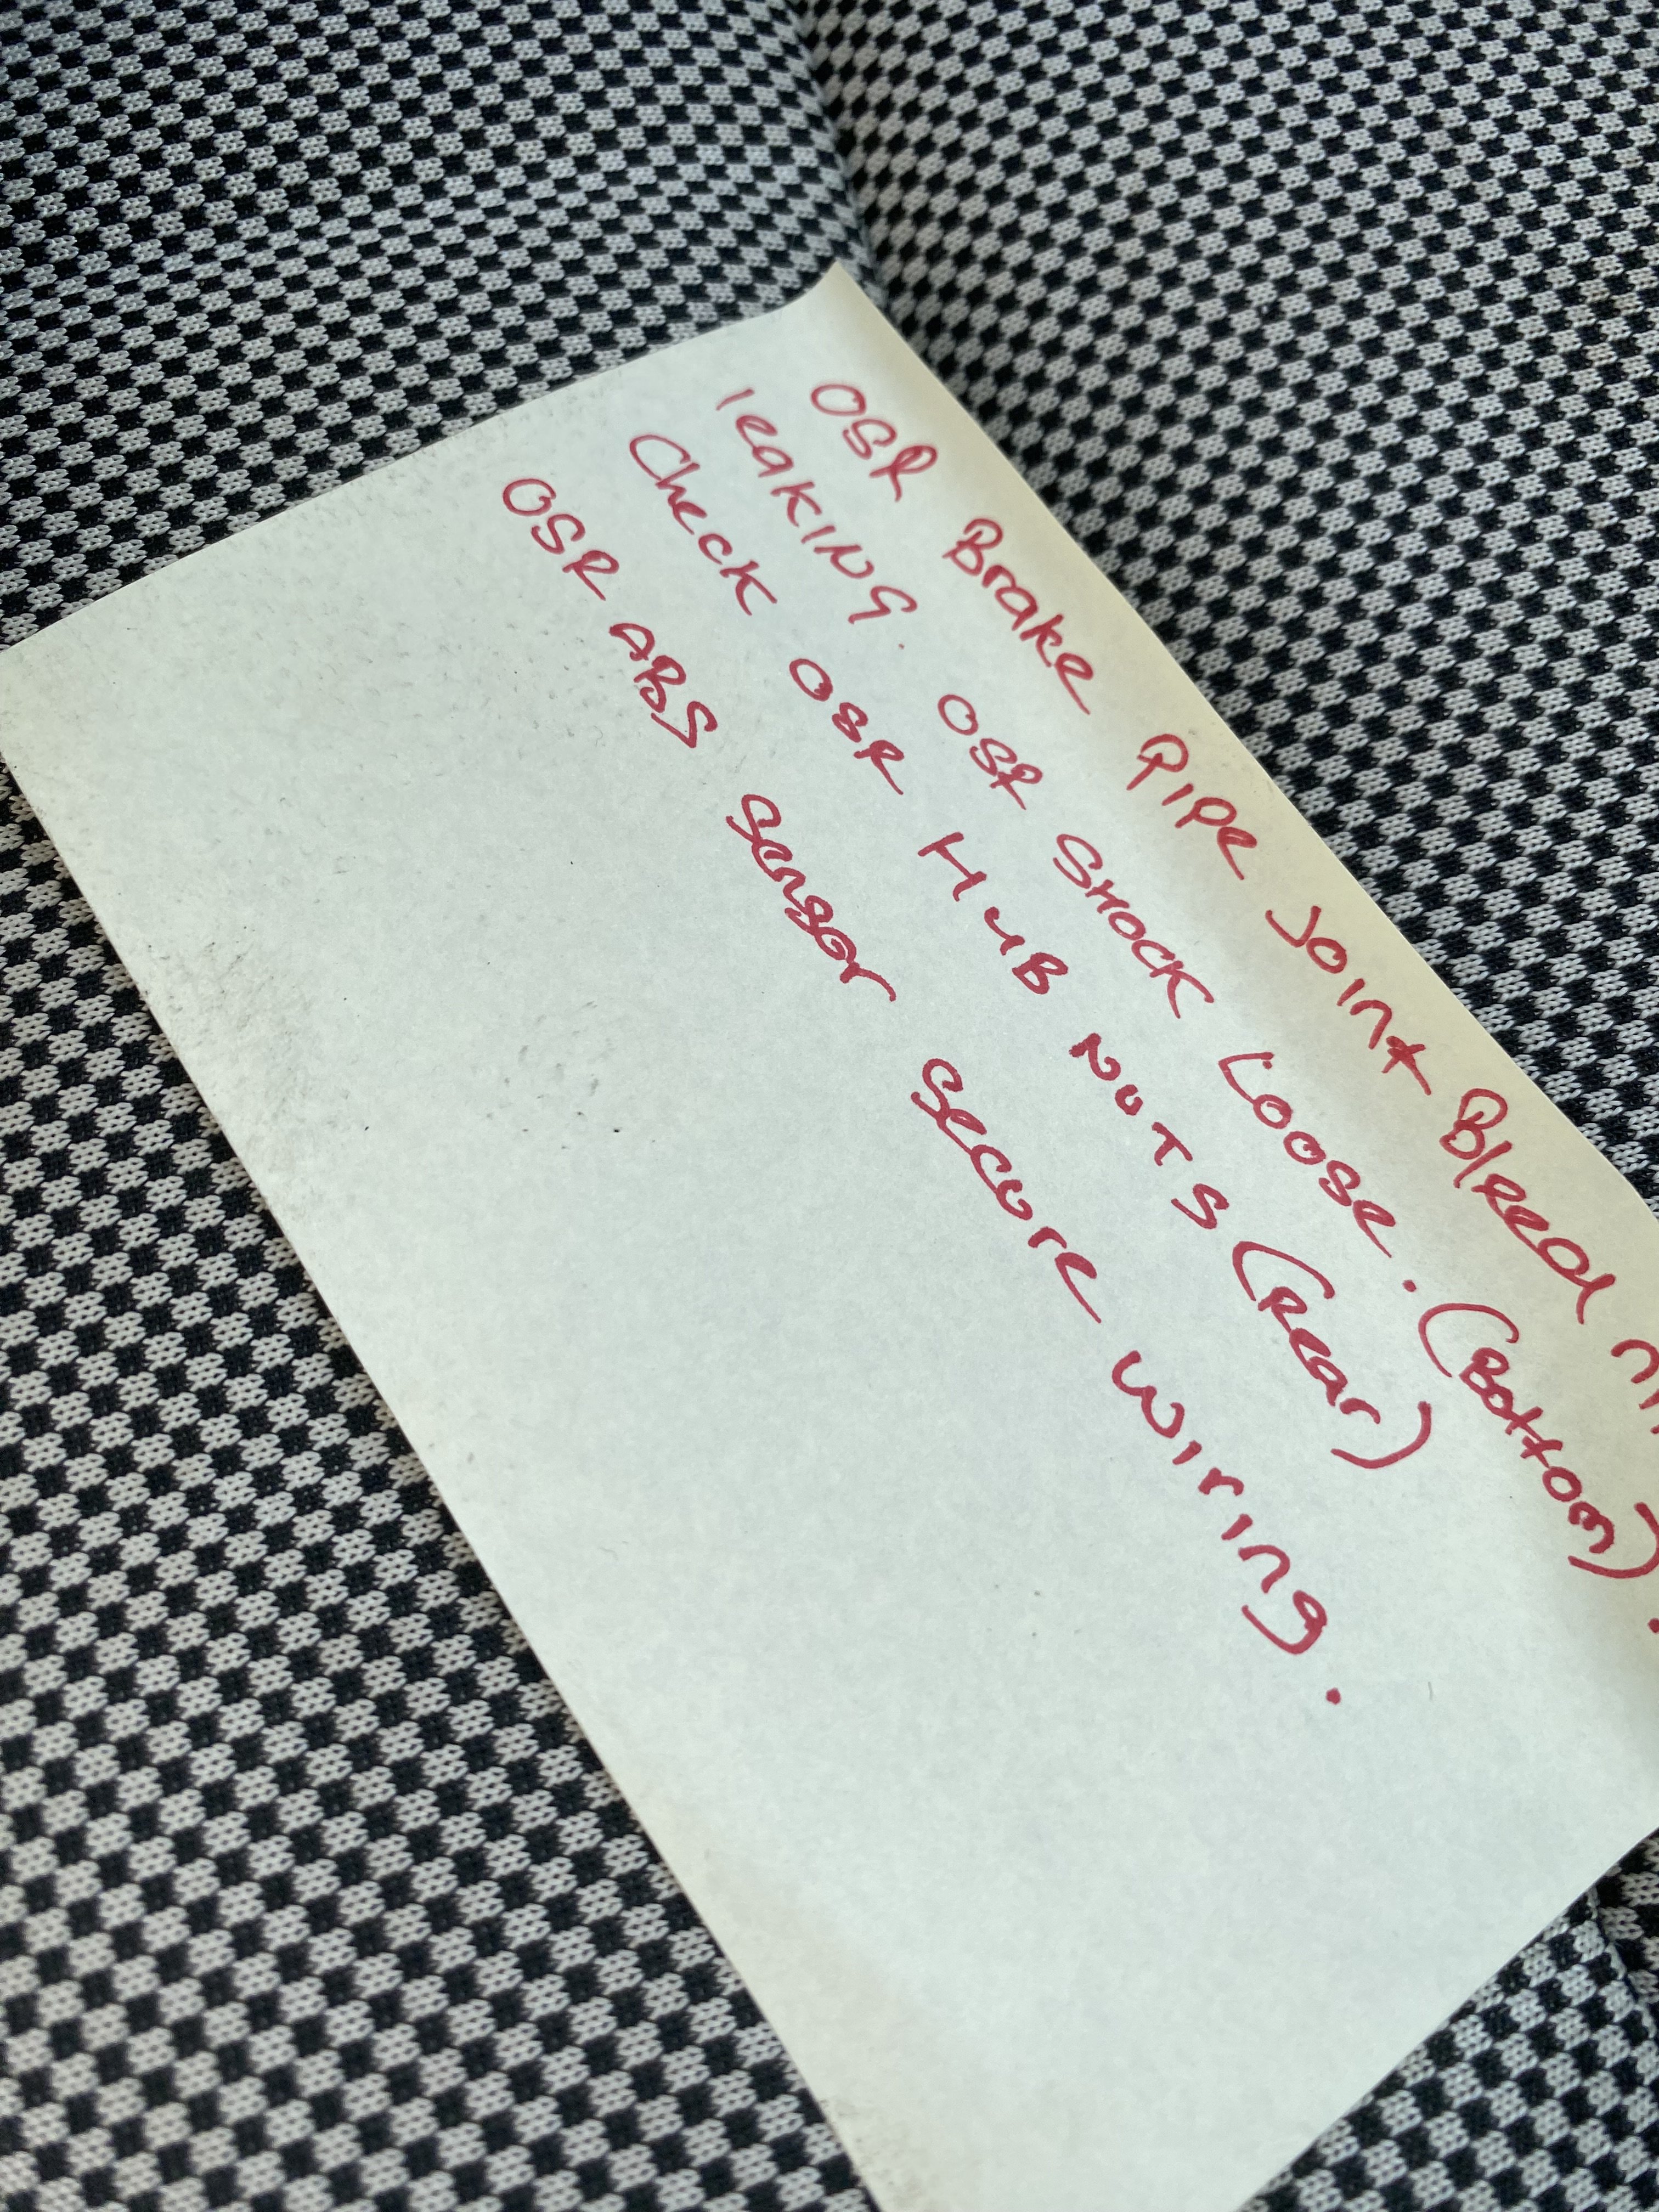 OSR Brake Pipe Joint Bleed
leaking. OSR SHOCK Loose. (Bottom).
Check OSR HuB NUTS (Rear)
OSR ABS Sensor Secure wiring.